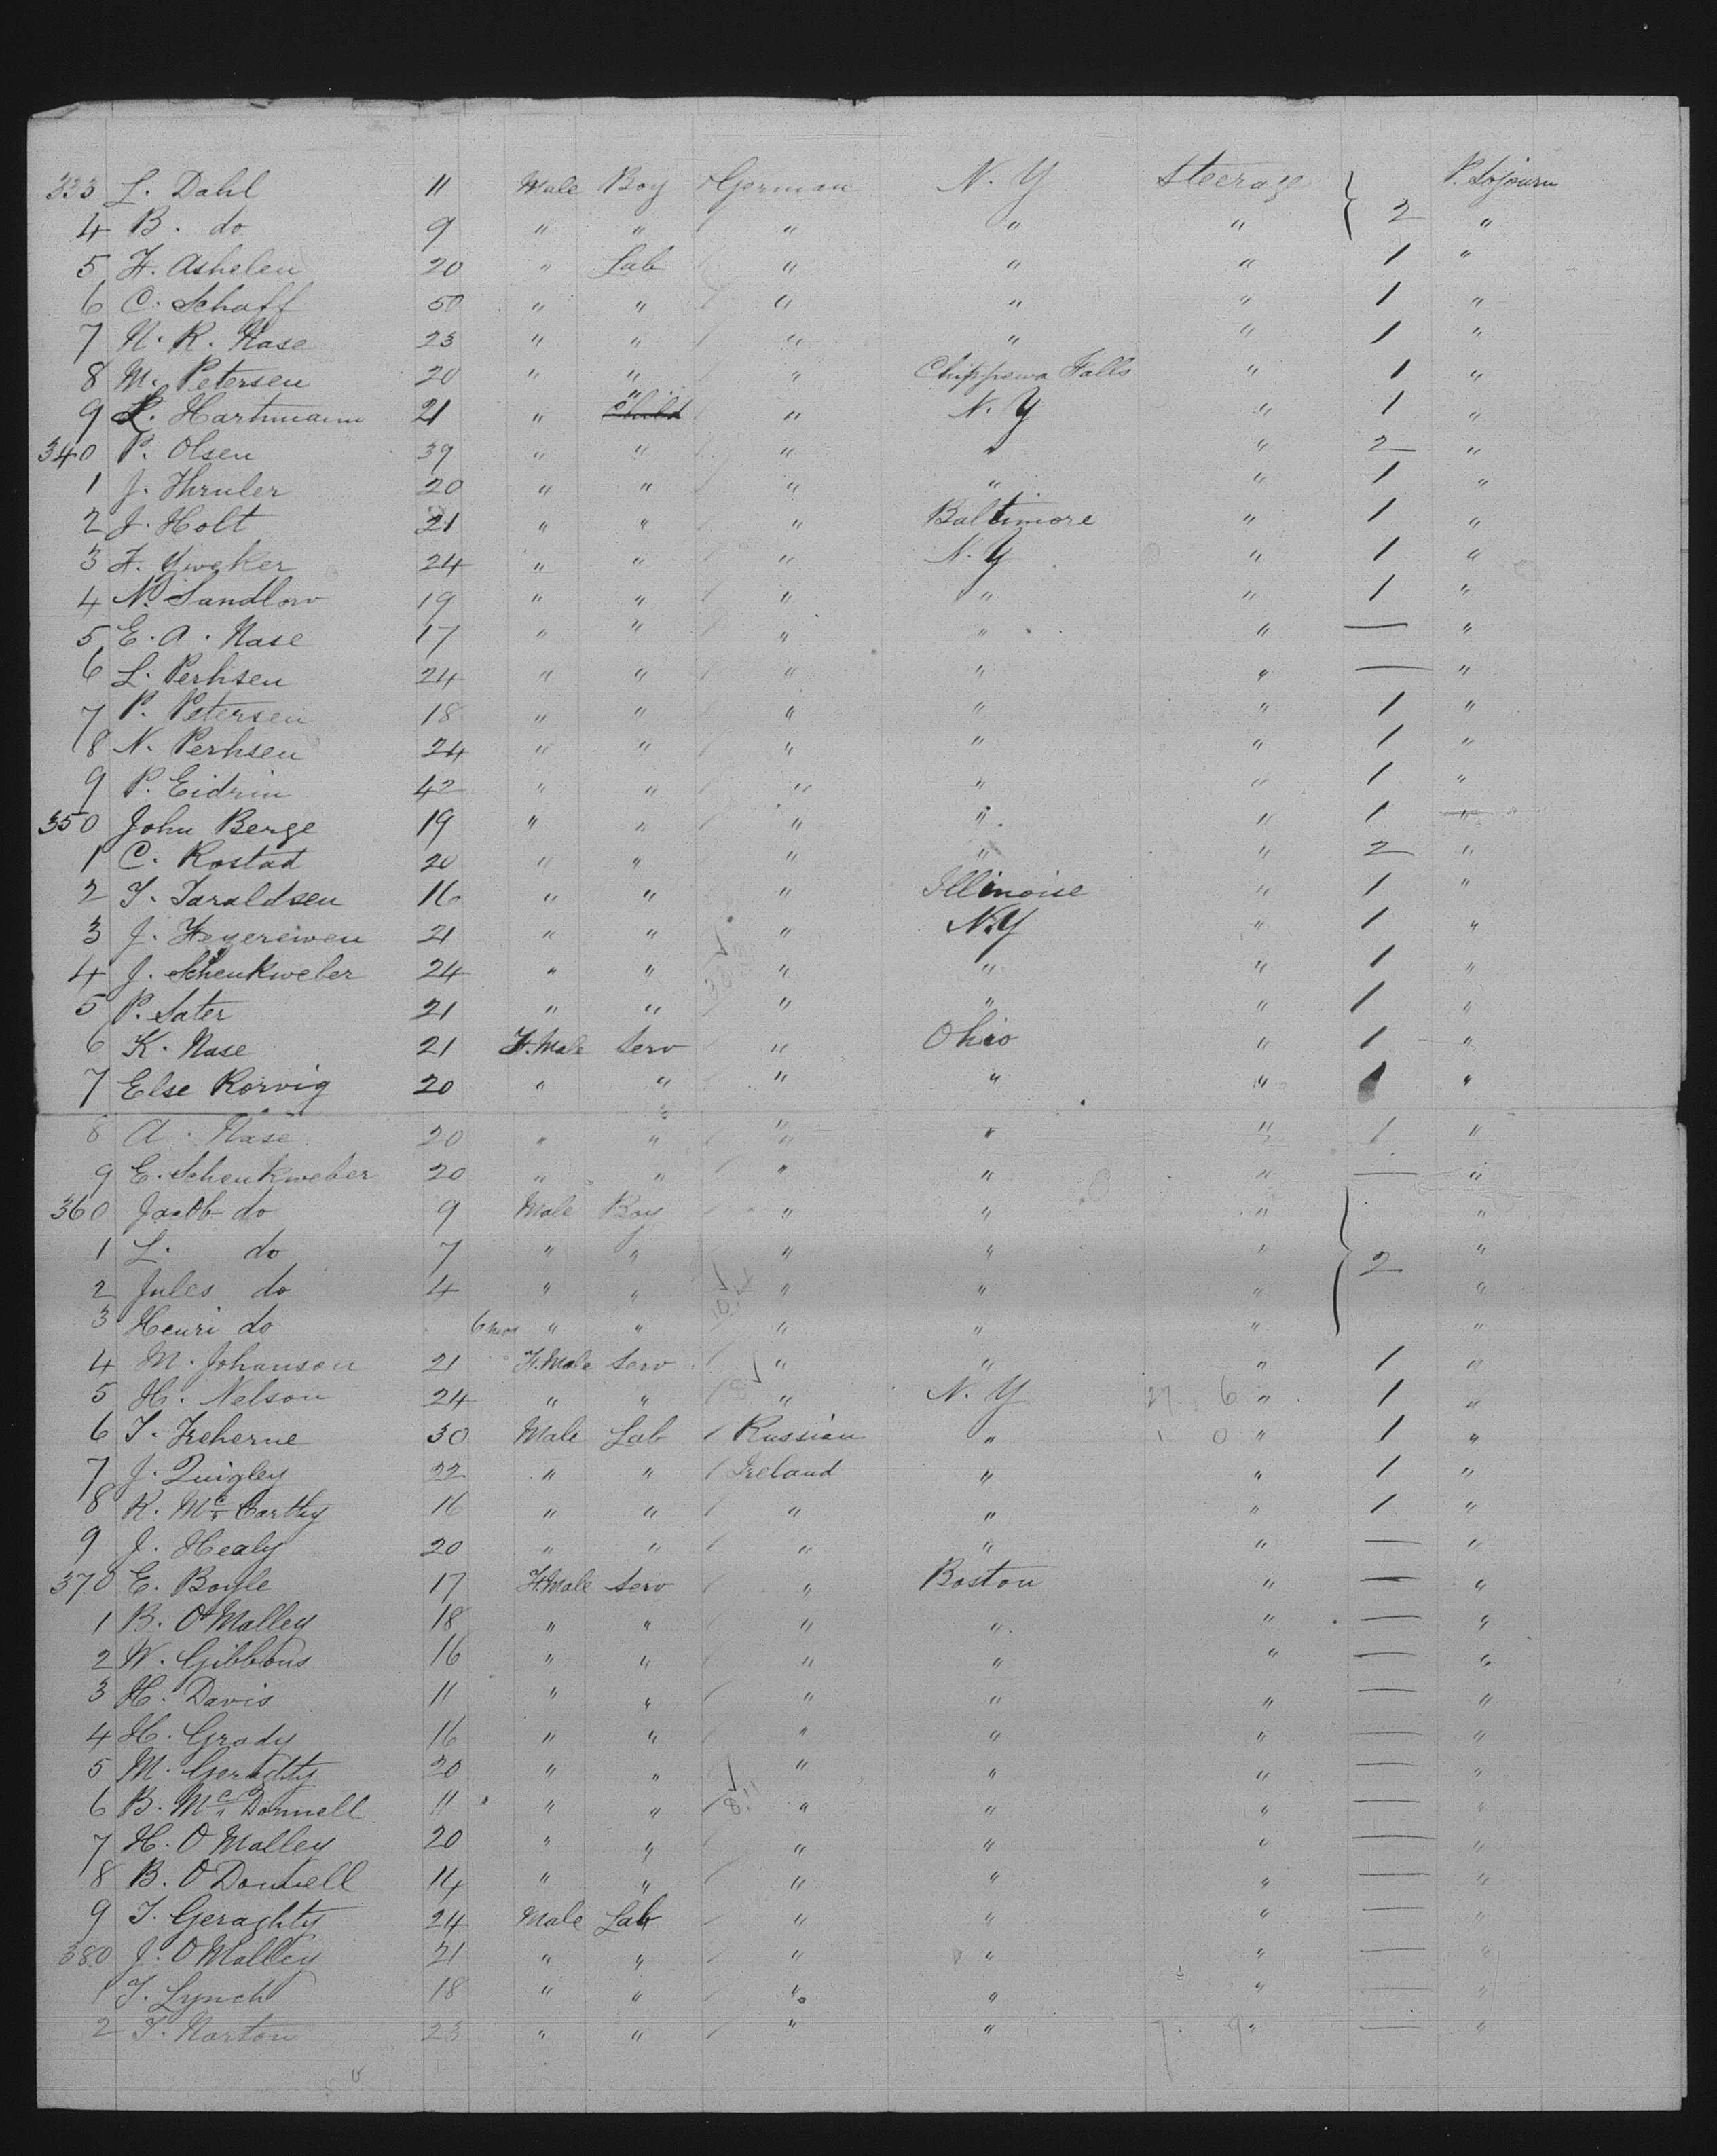 333 L. Dahl 11 Male Boy German N. Y Steerage 2 P. Sojourn
4 B. do 9 " " " " " "
5 F. Ashelen 20 " Lab " " " 1 "
6 C. Schaff 50 " " " " " 1 "
7 N. R. Nase 23 " " " " " 1 "
8 M. Petersen 20 " " " Chippewa Falls " 1 "
9 L. Hartmann 21 " " " N. Y " 1 "
340 P. Olsen 39 " " " " " 2 "
1 J. Thruler 20 " " " " " 1 "
2 J. Holt 21 " " " Baltimore " 1 "
3 F. Yweker 24 " " " N. Y " 1 "
4 N. Sandlow 19 " " " " " 1 "
5 E. A. Nase 17 " " " " " — "
6 L. Perhsen 24 " " " " " — "
7 P. Petersen 18 " " " " " 1 "
8 N. Perhsen 24 " " " " " 1 "
9 P. Eidrin 42 " " " " " 1 "
350 John Berge 19 " " " " " 1 "
1 C. Rostad 20 " " " " " 2 "
2 T. Taraldsen 16 " " " Illinoise " 1 "
3 J. 21 " " " N.Y " 1 "
4 J. Schenkweber 24 " " " " " 1 "
5 P. Sater 21 " " " " " 1 "
6 K. Nase 21 F.Male Serv " Ohio " 1 "
7 Else Rorvig 20 " " " " " 1 "
8 A. Nase 20 " " " " " 1 "
9 E. Schenkweber 20 " " " " " — "
360 Jacob do 9 Male Boy " " " "
1 L. do 7 " " " " " 2 "
2 Jules do 4 " " " " " "
3 Henri do 6 mos " " " " " "
4 M. Johanson 21 F.Male Serv " " " 1 "
5 H. Nelson 24 " " " N. Y 27 6 " 1 "
6 T. Treherne 30 Male Lab Russian " 1 0 " 1 "
7 J. Quigley 22 " " Ireland " " 1 "
8 R. McCarthy 16 " " " " " 1 "
9 J. Healy 20 " " " " " — "
370 E. Boyle 17 F.Male Serv " Boston " — "
1 B. O'Malley 18 " " " " " — "
2 W. Gibbons 16 " " " " " — "
3 H. Davis 11 " " " " " — "
4 H. Grady 16 " " " " " — "
5 M. Geraghty 20 " " " " " — "
6 B. McDonnell 11 " " " " " — "
7 H. O Malley 20 " " " " " — "
8 B. O Donnell 14 " " " " " — "
9 T. Geraghty 24 Male Lab " " " — "
380 J. O Malley 21 " " " " " — "
1 T. Lynch 18 " " " " " — "
2 T. Narton 23 " " " " 7. 9 " — "